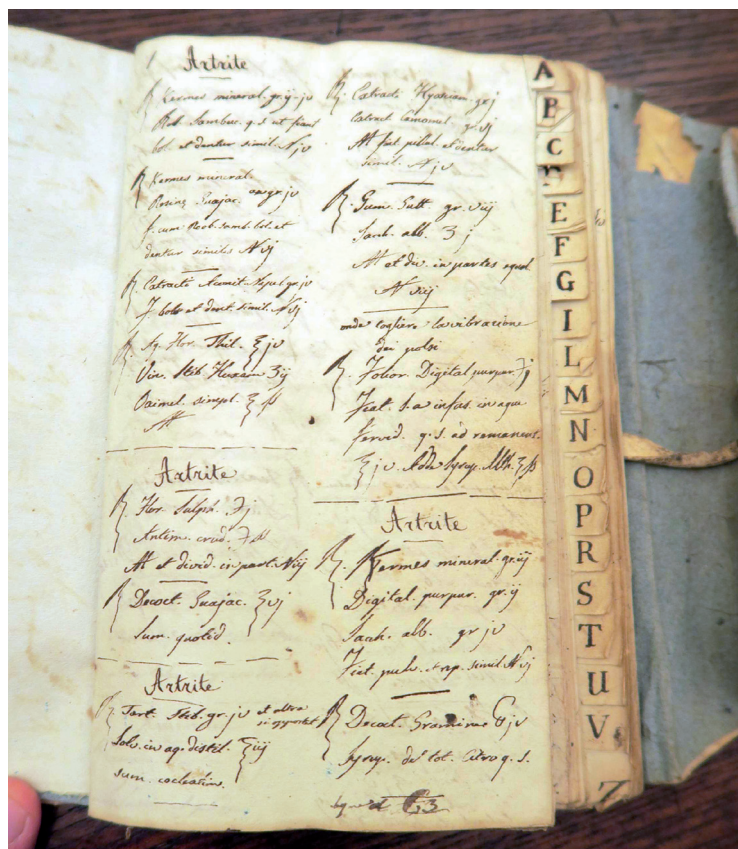 Artrite
Kermes mineral. gr. ij. jv
Rob. Sambuc. q. s. ut fiant
bol. et dentur simil. N jv
Kermes mineral.
Resinæ Guajac. gr jv
f. cum Roob. samb. bol. et
dentur similes N vj
Extracti Aconit. Napel gr jv
f. bol. et dent. simil. N vj
Aq. Flor. Thil. ℥ jv
Vin. Stib Huxam ʒ ij
Oximel. simpl. ℥ ß
M
Artrite
Flor. Sulph. ℈ j
Antim. crud. ℈ ß
M et divid. in part. N iij
Decoct. Guajac. ℥ vj
Sum. quotid.
Artrite
Tart. Stib. gr. jv
Solv. in aq. distil. ℥ iij
sum. cocleatim.
Extracti Hyosciam. gr j
Extract Camomil. gr. vj
M fiat pilul. et dentur
simil. N jv
Gum. Gutt. gr. viij
Sach. alb. ʒ j
M et div. in partes equal.
N viij
onde togliere la vibrazione
dei polsi
Folior. Digital. purpur. ʒ j
Fiat. s. a infus. in aqua
fervid. q. s. ad remanens.
℥ jv. Adde Syrup. Alth. ℥ ß
Artrite
Kermes mineral. gr. iij
Digital. purpur. gr. ij
Sach. alb. gr jv
Fiat pulv. simil. N vj
Decoct. Graminis jv
Syrup. de tot. Citro q. s.
A
B
C
D
E
F
G
I
L
M
N
O
P
R
S
T
U
V
Z